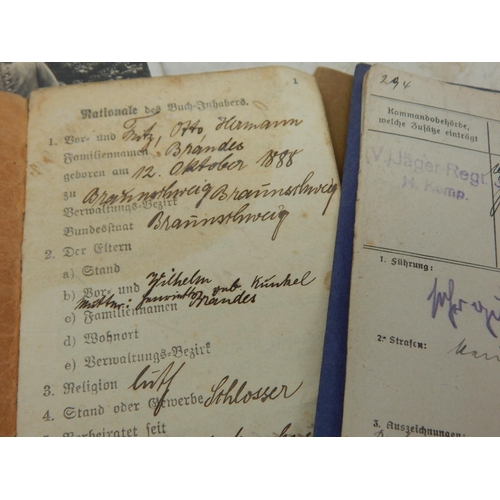 1
Nationale des Buch-Inhabers.
1. Vor- und Fritz, Otto, Hermann
Familiennamen Brandes
geboren am 12. Oktober 1888
zu Braunschweig Braunschweig
Verwaltungs-Bezirk
Bundesstaat Braunschweig
2. Der Eltern
a) Stand
b) Vor- und Wilhelm
Mutter: geb Kunkel
c) Familiennamen Brandes
d) Wohnort
e) Verwaltungs-Bezirk
3. Religion luth
4. Stand oder Gewerbe Schlosser
5. Verheiratet seit
294
Kommandobehörde,
welche Zusätze einträgt
(V.) Jäger-Regt.
H. Komp.
1. Führung:
sehr gut
2. Strafen:
3. Auszeichnungen: